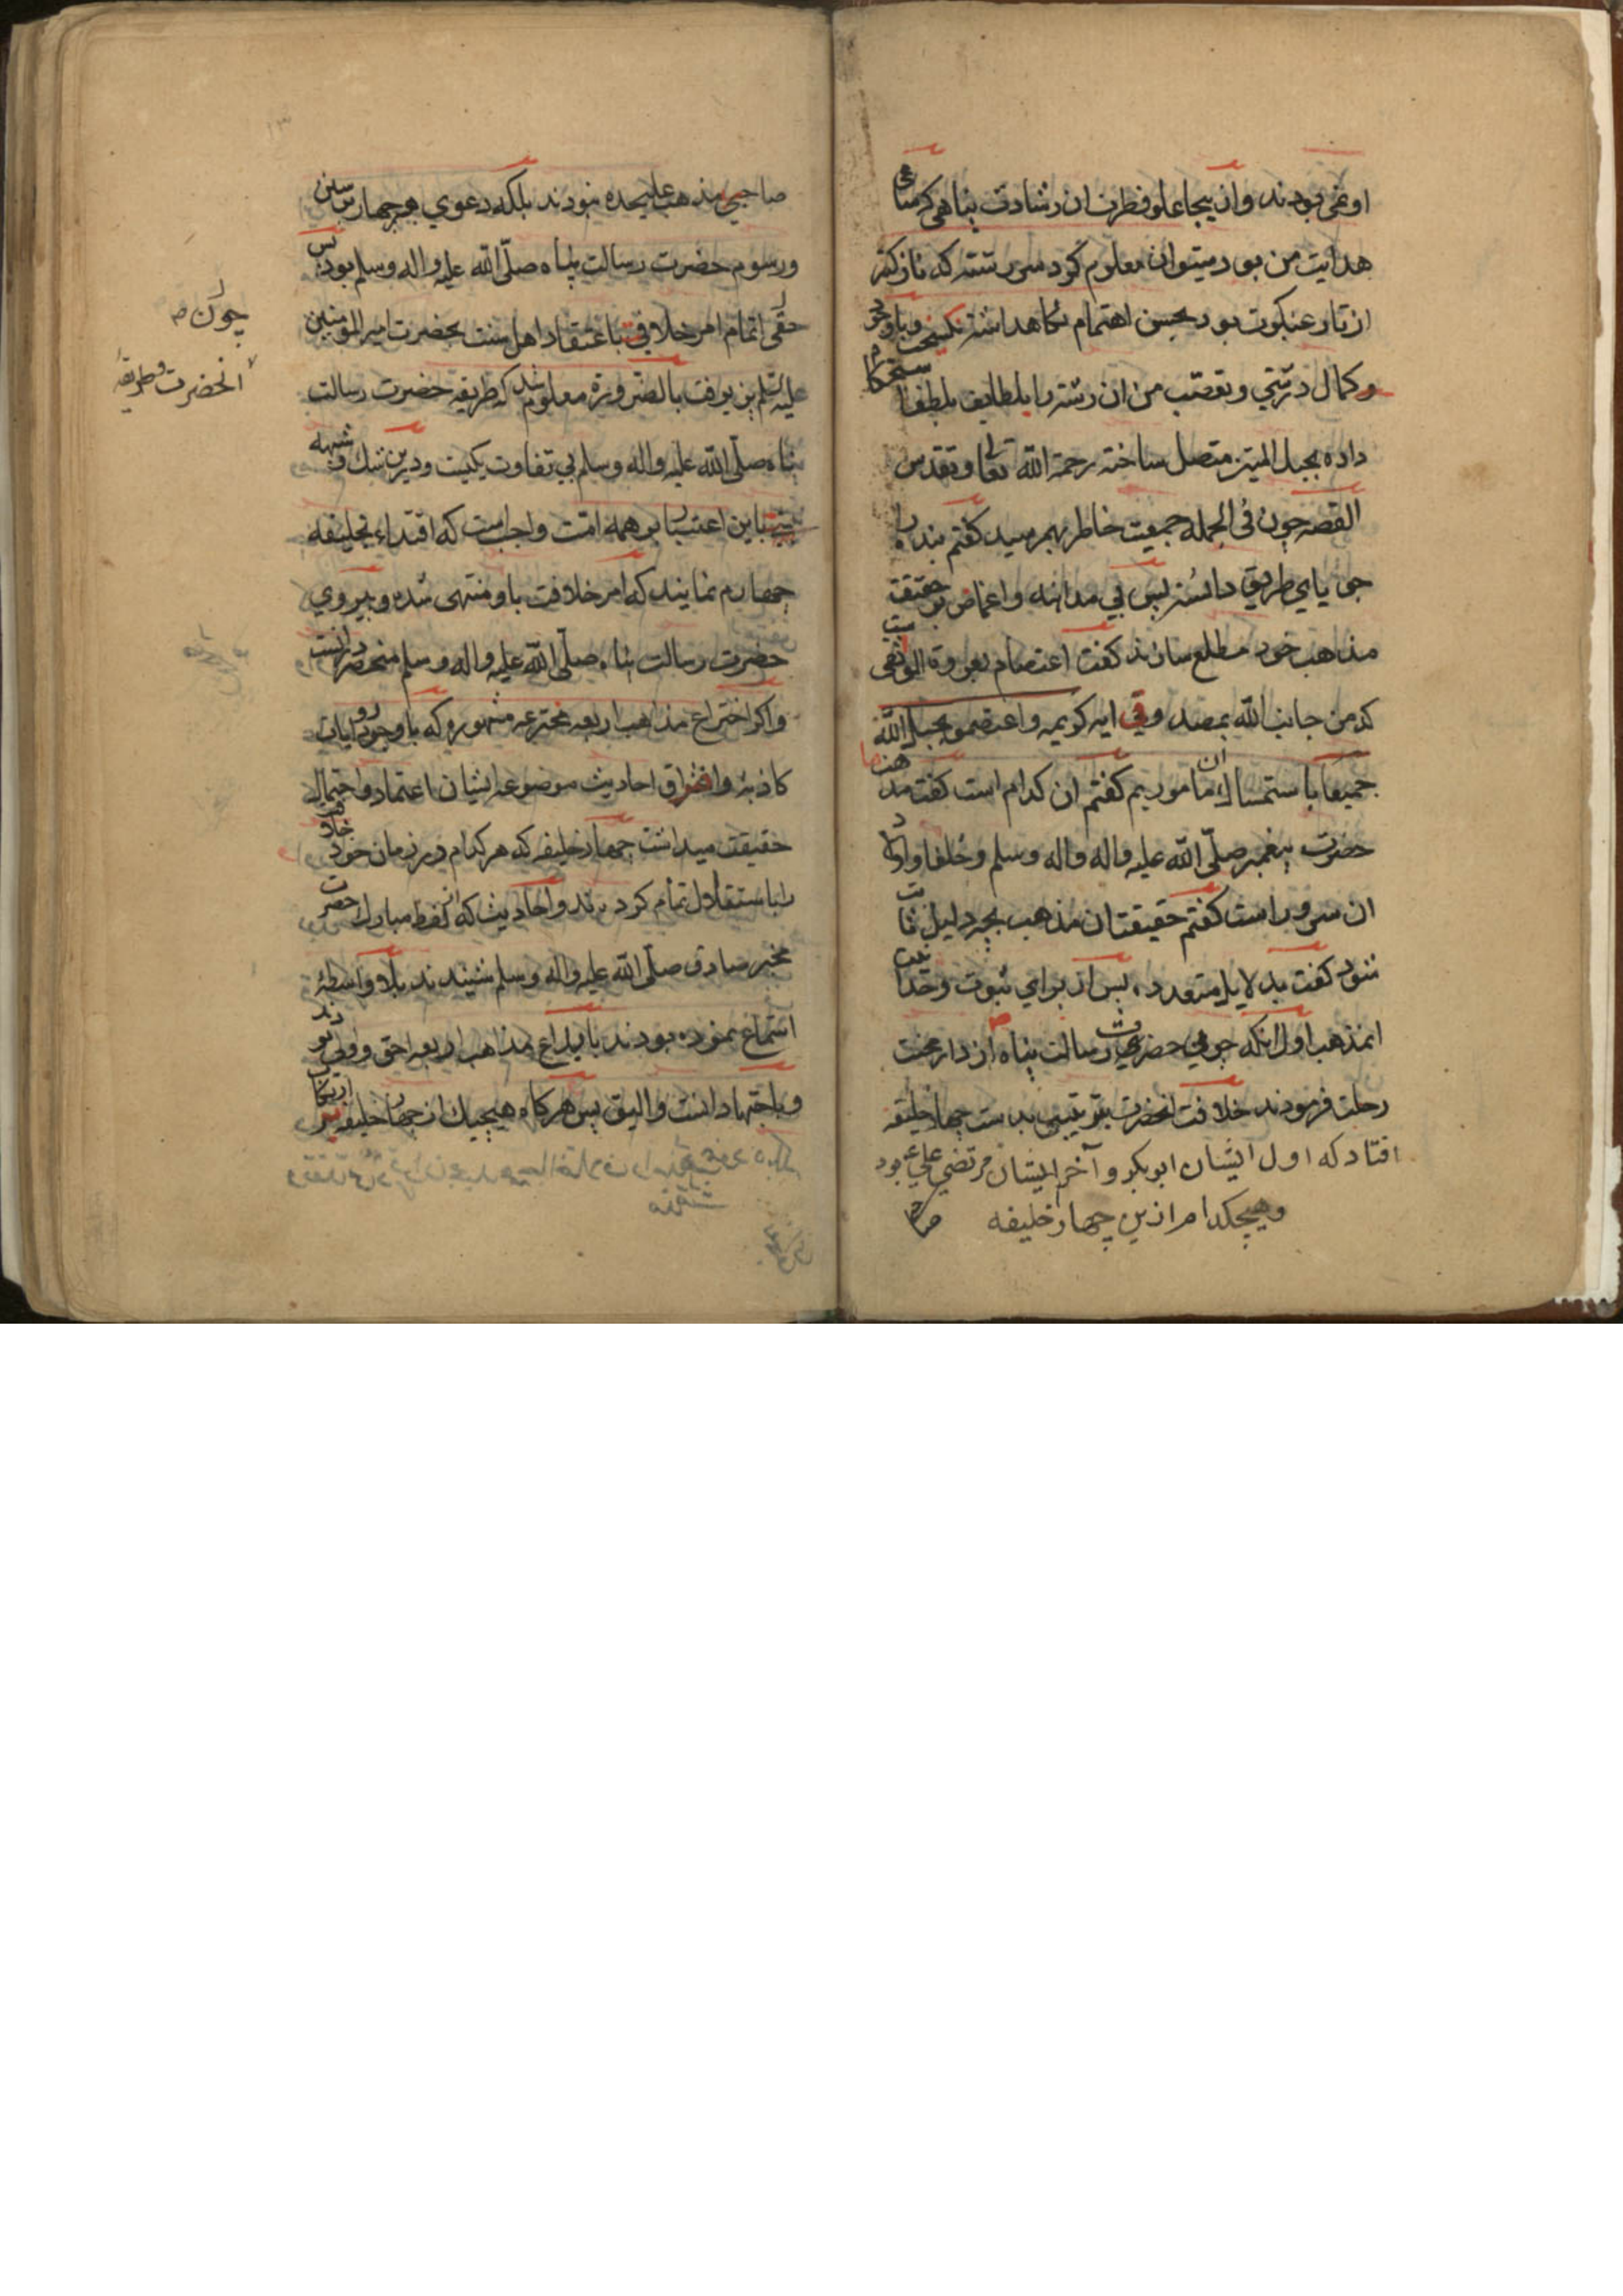 او نمی بودند و از یجا علو فطرت ان رشادت پناهی که مساعی
هدایت من بود میتوان معلوم کرد سررشته که نازکتر
از تار عنکبوت بود بحسن اهتمام نگاهداشته نکسیخت وباوجود
وکمال درشتی وتعصّب من ان رشته را بلطایف بلطف استحکام
داده بحبل المتین متصل ساخته رحمة الله تعالی وتقدس
القصه چون فی الجمله جمعیت خاطر بهم رسید کفتم بنده را
جویای طریق دانسته پس بی مداهنه واغماض بر حقیقت
مذاهب خود مطلع سازند کفت اعتصام بعروة الوثقی
که من جانب الله بمصدوقی ایه کریمه واعتصموا بحبل الله
جمیعا باستمساک ان ماموریم کفتم ان کدام است کفت مذهب
حضرت پیغمبر صلّی الله علیه واله واله وسلم وخلفا واولاد
ان سرور است کفتم حقیقت ان مذهب بچه دلیل ثابت
شود کفت بدلایل متعدده پس از برای ثبوت وحدا نیت
انمذهب اول انکه چون حضرت رسالت پناه از دار محنت
رحلت فرمودند خلافت انحضرت بترتیبی بدست چهار خلیفه
افتاد که اول ایشان ابوبکر و آخر ایشان مرتضی علی ع بود
وهیچکدام ازین چهار خلیفه صح
صاحبی مذهب علیحده نبودند بلکه دعوی هر چهار سنن
ورسوم حضرت رسالت پناه صلّی الله علیه واله وسلم بود پس
حقی اتمام امر خلافت باعتقاد اهل سنت بحضرت امیر المومنین
علیه السلم پذیرفت بالضروره معلوم شد که طریقه حضرت رسالت
پناه صلّی الله علیه واله وسلم بی تفاوت یکیست ودرین شک وشبهه
نیست باین اعتبار بر همه امّت واجبست که اقتداء بخلیفه
چهارم نمایند که امر خلافت باو منتهی شده وپیروی
حضرت رسالت پناه صلّی الله علیه واله وسلم منحصر دانست
واکر اختراع مذاهب اربعه مخترعه مشهوره که باوجود روایات
کاذبه وافتراق احادیث موضوعه ایشان اعتماد واحتمال
حقیقت میداشت چهار خلیفه که هر کدام در زمان خود خلافت
را باستقلال تمام کردند واحادیث که از لفظ مبارک حضرت
مخبر صادق صلّی الله علیه واله وسلم شنیدند بلا واسطه
استماع نموده بودند بابداع مذاهب اربعه احق واولی بودند
وباجتهاد انسب والیق پس هرکاه هیچیک از چهار خلیفه
چون صح
انحضرت وطریقهٔ